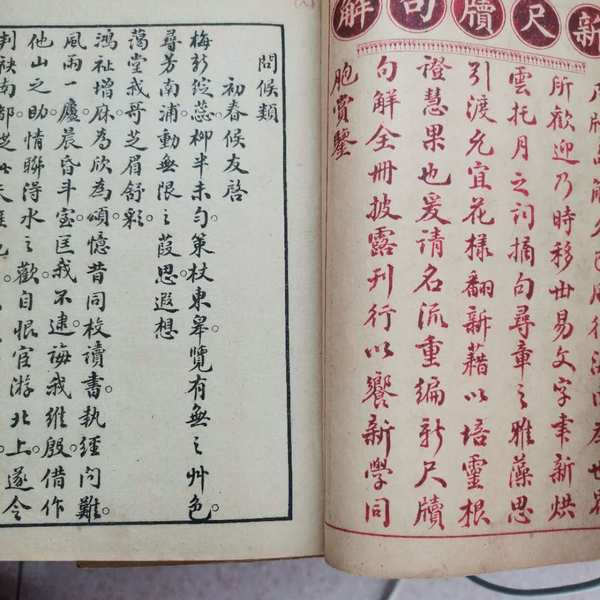 新尺牘句解
久已風行海內為世界
所歡迎乃時移世易文字聿新烘
雲托月之詞摘句尋章之雅藻思
引渡允宜花樣翻新藉以培靈根
證慧果也爰請名流重編新尺牘
句解全冊披露刊行以饗新學同
胞賞鑒
問候類
初春候友啓
梅新綻蕊。柳半未勻。策杖東皋。覽有無之艸色。
尋芳南浦。動無限之葭思遐想
藹堂我哥芝眉舒彩。
鴻祉增庥為欣為頌。憶昔同校讀書。執經問難。
風雨一廬。晨昏斗室。匡我不逮。誨我維殷。借作
他山之助。情聯得水之歡。自恨宦游北上。遂令
判袂南都